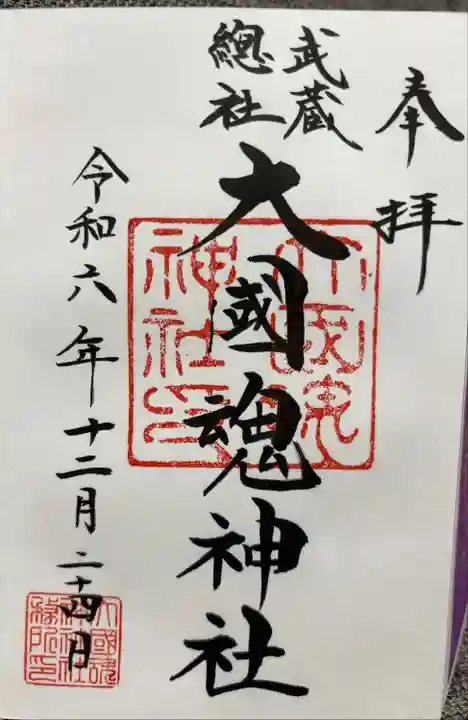 奉拝
武蔵
總社
大國魂神社
令和六年十二月二十四日
大國魂
神社印
大國魂
神社社
務所印